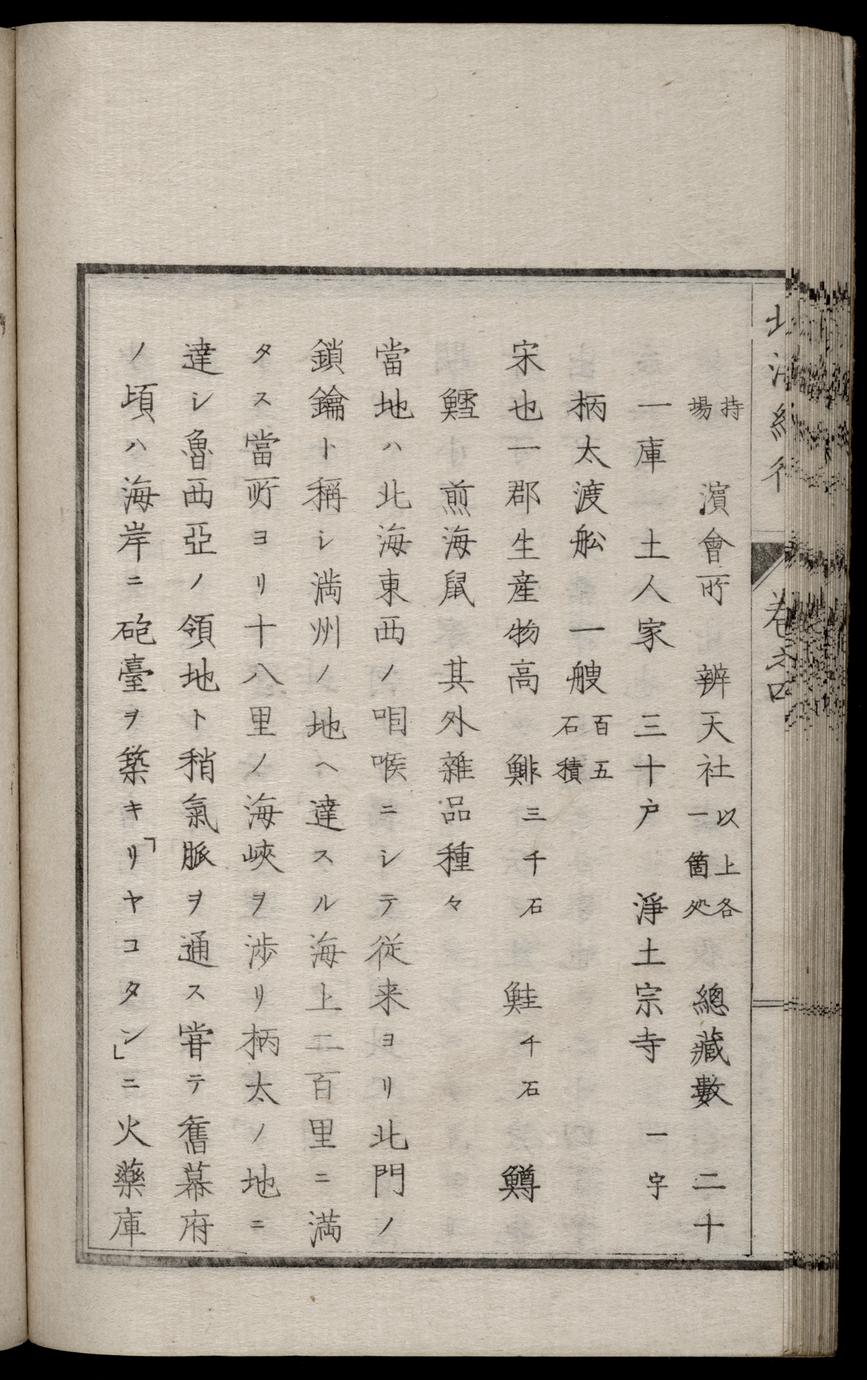 持場　濱會所　辨天社以上各一箇処　總藏數　二十
一庫　土人家　三十戸　淨土宗寺　一宇
柄太渡舩　一艘百五石積
宋也一郡生産物高　鯡三千石　鮭千石　鱒
鱈　煎海鼠　其外雑品種々
當地ハ北海東西ノ咽喉ニシテ従来ヨリ北門ノ
鎖鑰ト稱シ満州ノ地ヘ達スル海上二百里ニ満
タス當所ヨリ十八里ノ海峽ヲ渉リ柄太ノ地ニ
達シ魯西亞ノ領地ト稍氣脈ヲ通ス甞テ舊幕府
ノ頃ハ海岸ニ砲臺ヲ築キ「リヤコタン」ニ火藥庫
巻之四